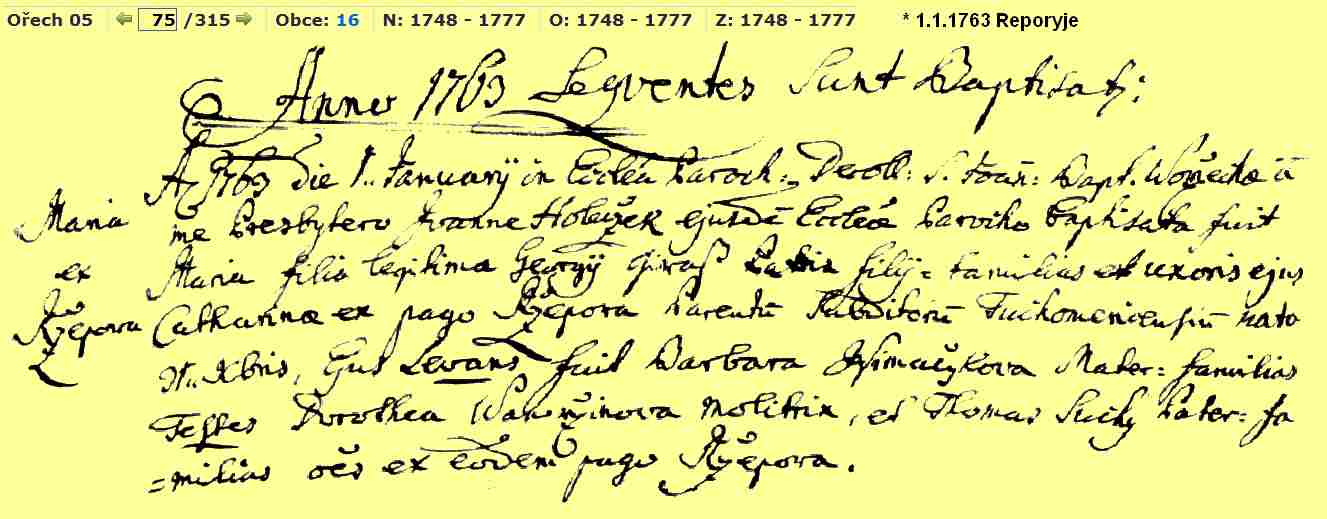 Ořech 05 75 /315 Obce: 16 N: 1748 - 1777 O: 1748 - 1777 Z: 1748 - 1777 * 1.1.1763 Reporyje
Anno 1763 Seqventes Sunt Baptisati:
A: 1763 die 1.. Januarij in Ecclea Paroch: S. Joan: Bapt. à
Maria me Presbytero Joanne Holeczek ejusdē Eccleæ Parocho Baptisata fuit
ex Maria filia legitima Georgij filij= familias et uxoris ejus
Ržepora Catharinæ ex pago Ržepora Parentū Subditorū nata
31.. Xbris, Ejus Levans fuit Barbara Mater= familias
Testes Dorothea Wawržinova Molitrix, et Thomas Suchy Pater= fa
=milias oēs ex eodem pago Ržepora.